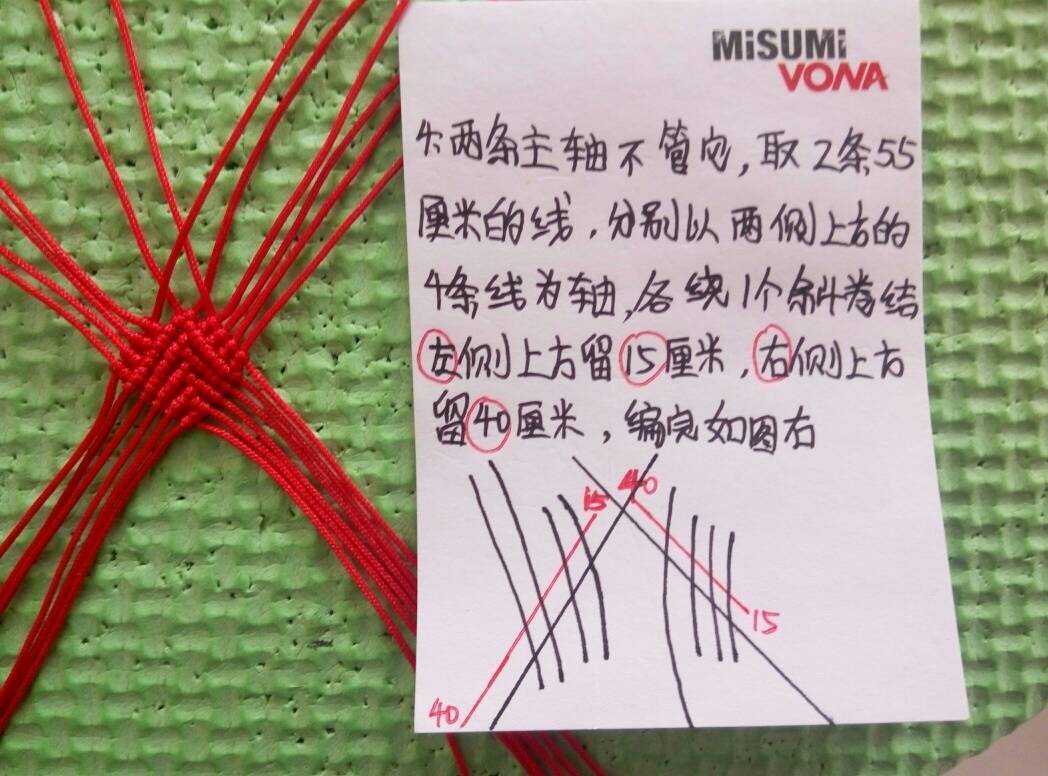 MiSUMi
VONA
4:两条主轴不管它,取2条55
厘米的线,分别以两侧上方的
4条线为轴,各绕1个斜卷结
左侧上方留15厘米,右侧上方
留40厘米,编完如图右
15 40
15
40